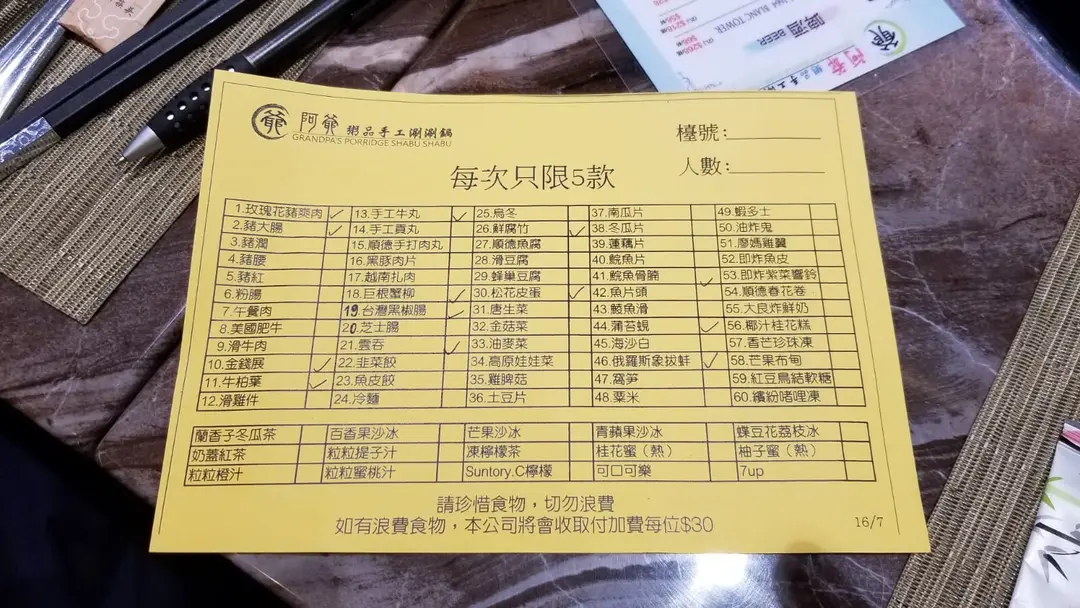 BEER 啤酒
BLANC TOWER
爺 阿爺 粥品手工涮涮鍋
GRANDPA'S PORRIDGE SHABU SHABU
檯號:
人數:
每次只限5款
1.玫瑰花豬爽肉 13.手工牛丸 25.烏冬 37.南瓜片 49.蝦多士
2.豬大腸 14.手工貢丸 26.鮮腐竹 38.冬瓜片 50.油炸鬼
3.豬潤 15.順德手打肉丸 27.順德魚腐 39.蓮藕片 51.廖媽雞翼
4.豬腰 16.黑豚肉片 28.滑豆腐 40.鯇魚片 52.即炸魚皮
5.豬紅 17.越南扎肉 29.蜂巢豆腐 41.鯇魚骨腩 53.即炸紫菜響鈴
6.粉腸 18.巨根蟹柳 30.松花皮蛋 42.魚片頭 54.順德春花卷
7.午餐肉 19.台灣黑椒腸 31.唐生菜 43.鯪魚滑 55.大良炸鮮奶
8.美國肥牛 20.芝士腸 32.金菇菜 44.蒲苔蜆 56.椰汁桂花糕
9.滑牛肉 21.雲吞 33.油麥菜 45.海沙白 57.香芒珍珠凍
10.金錢展 22.韭菜餃 34.高原娃娃菜 46.俄羅斯象拔蚌 58.芒果布甸
11.牛柏葉 23.魚皮餃 35.雞脾菇 47.窩筍 59.紅豆鳥結軟糖
12.滑雞件 24.冷麵 36.土豆片 48.粟米 60.繽紛啫哩凍
蘭香子冬瓜茶 百香果沙冰 芒果沙冰 青蘋果沙冰 蝶豆花荔枝冰
奶蓋紅茶 粒粒提子汁 凍檸檬茶 桂花蜜（熱） 柚子蜜（熱）
粒粒橙汁 粒粒蜜桃汁 Suntory.C檸檬 可口可樂 7up
請珍惜食物，切勿浪費
如有浪費食物，本公司將會收取付加費每位$30
16/7